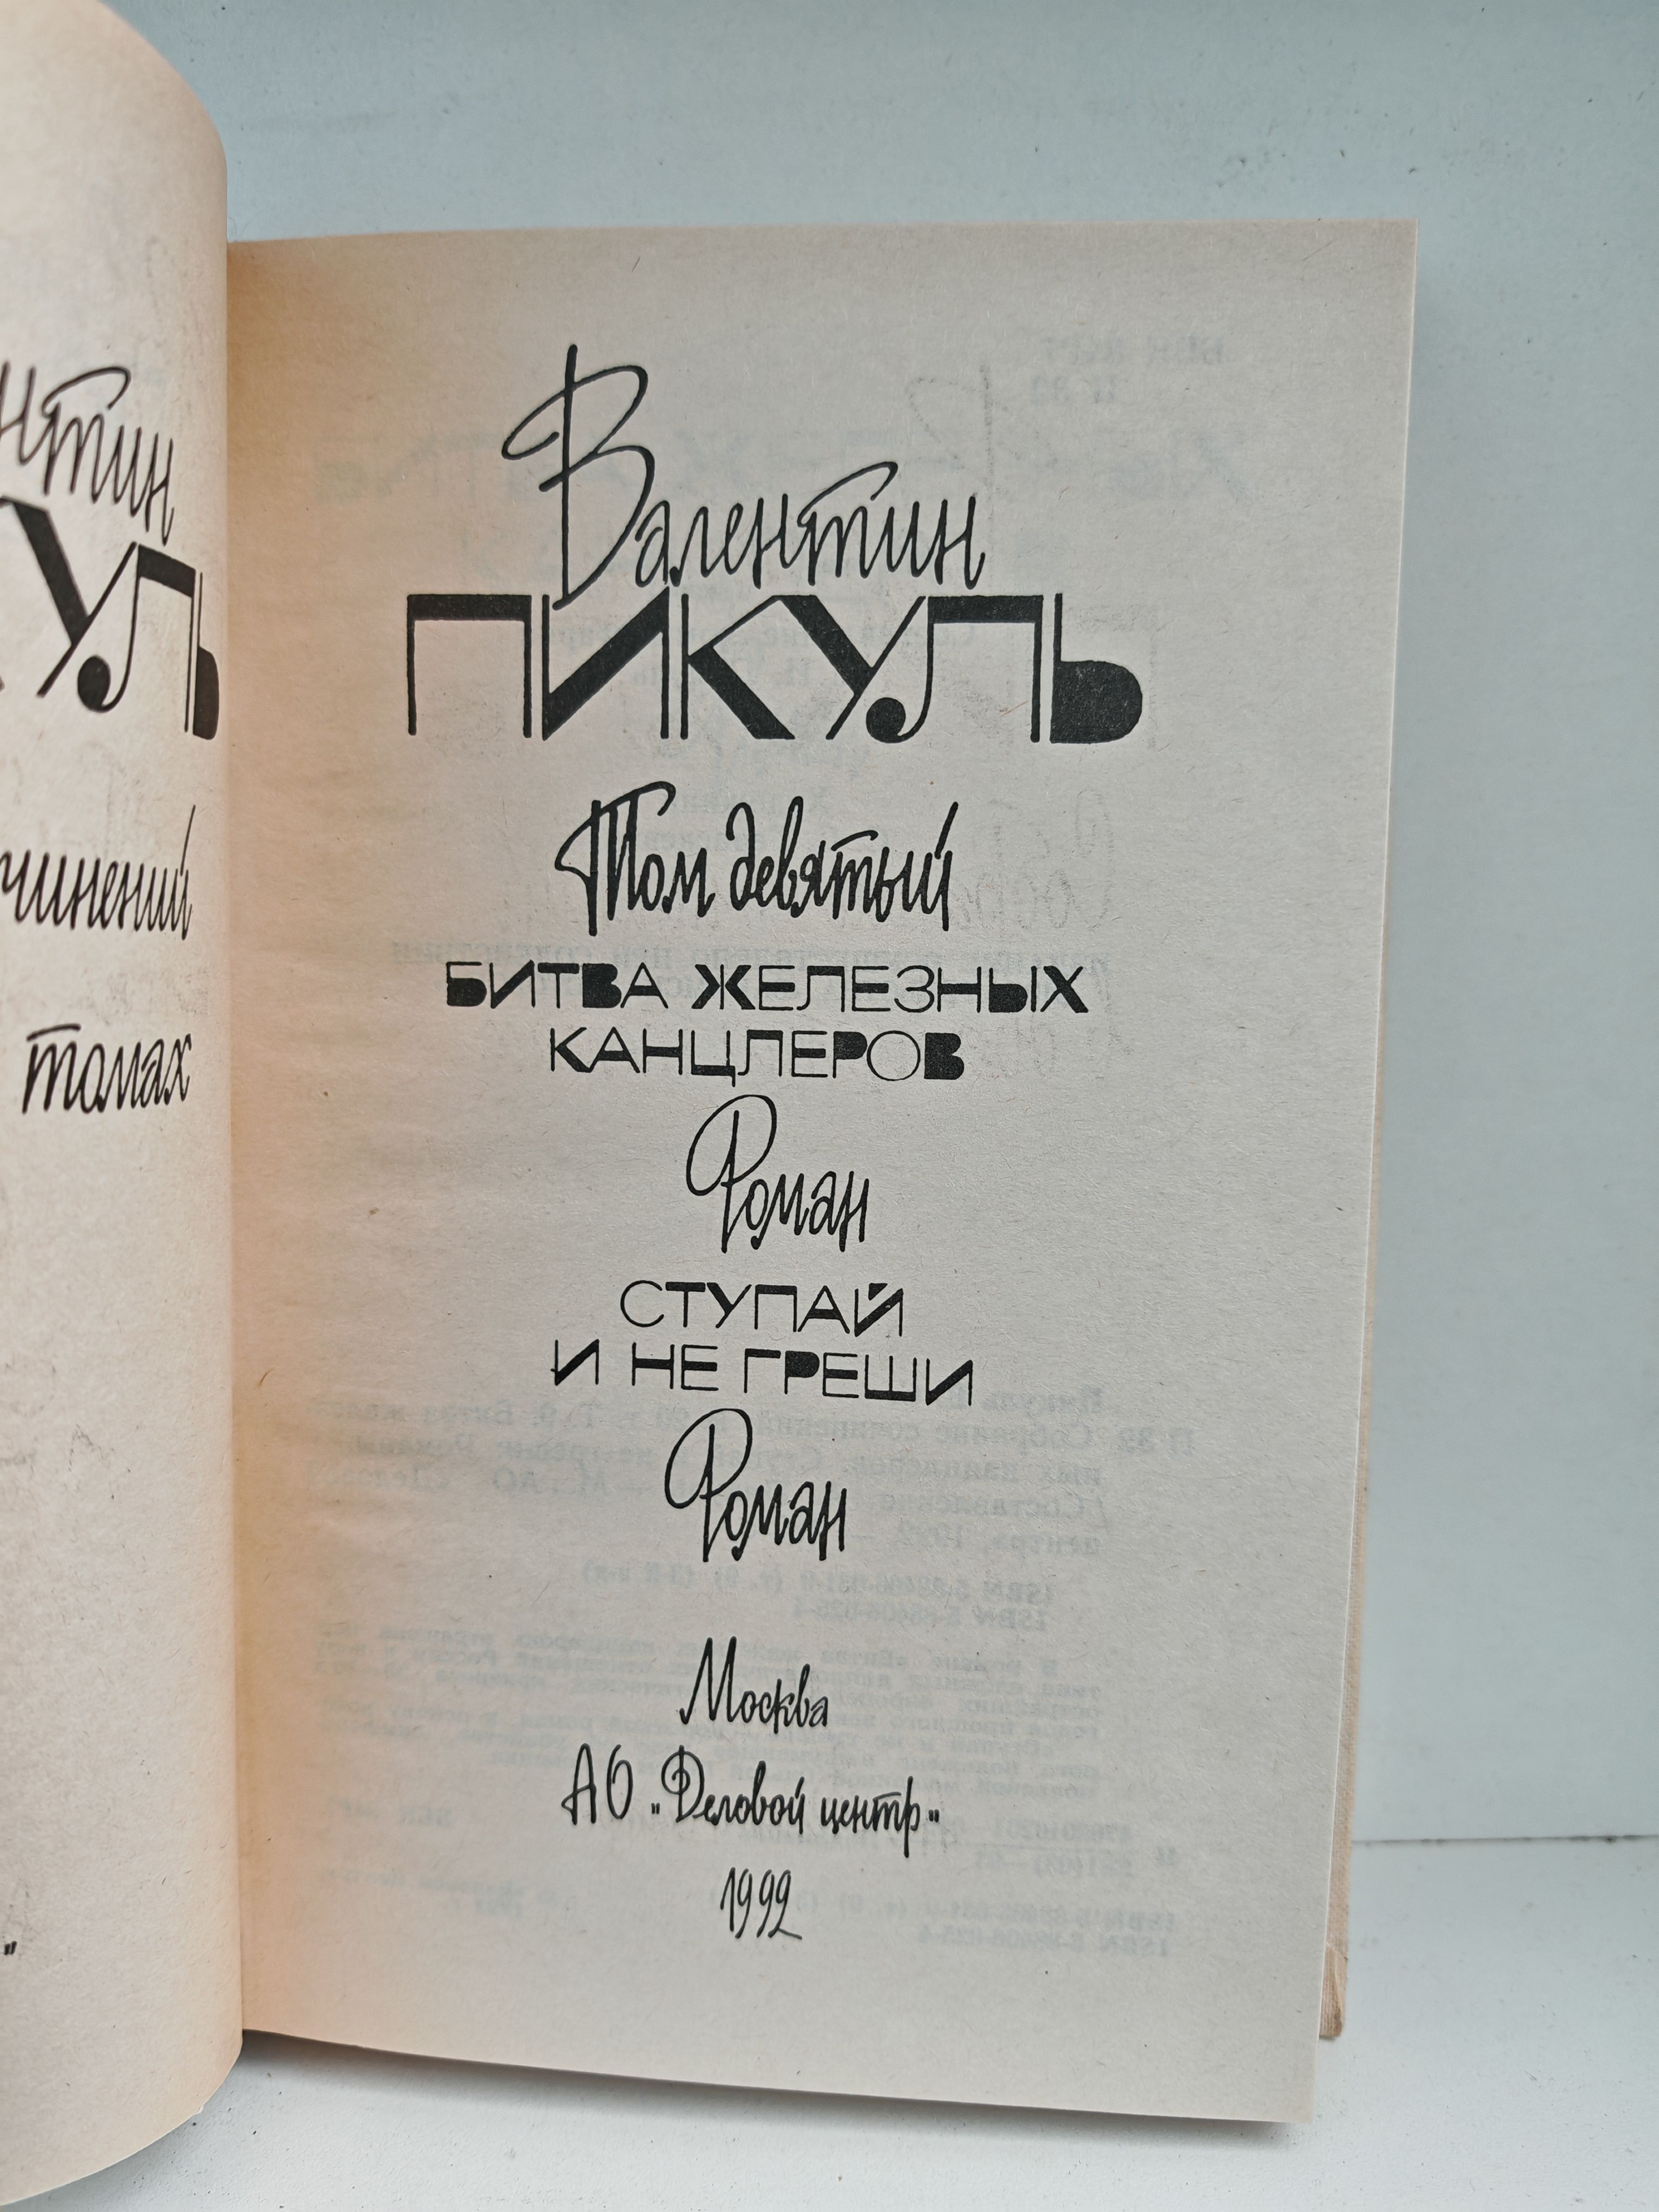 чинений
томах
Валентин
ПИКУЛЬ
Том девятый
БИТВА ЖЕЛЕЗНЫХ
КАНЦЛЕРОВ
Роман
СТУПАЙ
И НЕ ГРЕШИ
Роман
Москва
АО "Деловой центр"
1992